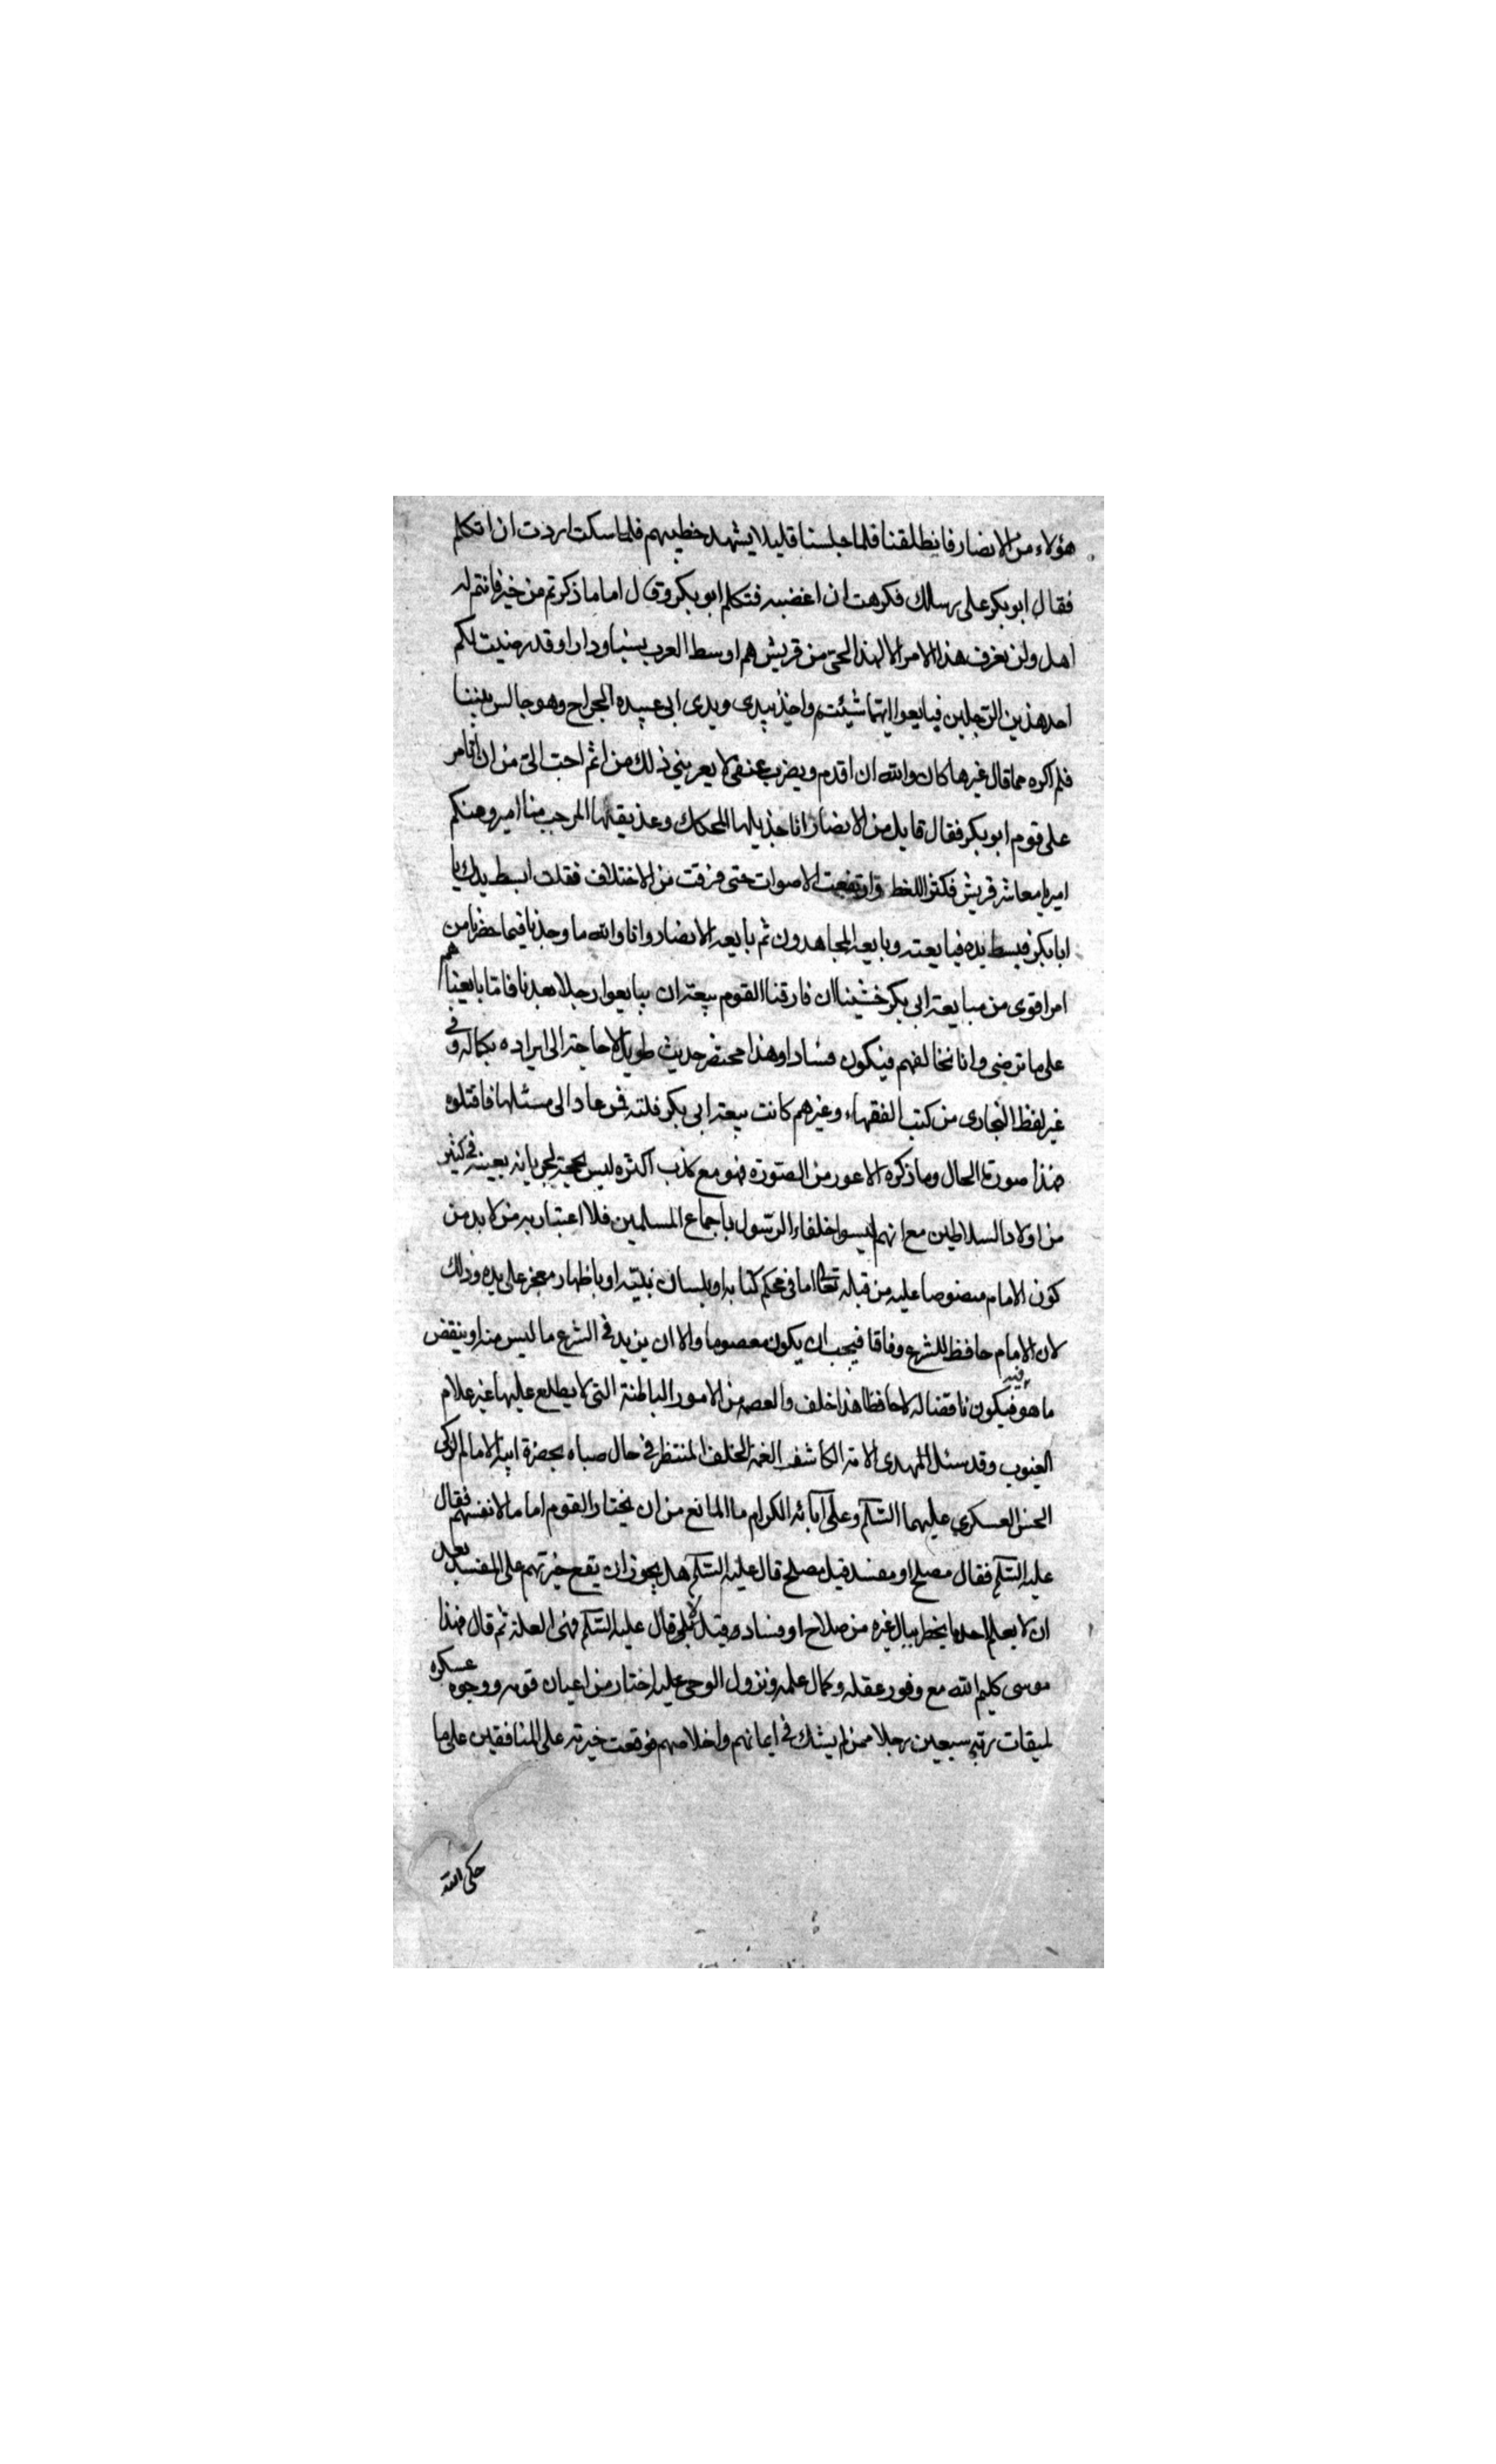 هؤلاء من الانصار فانطلقنا فلما جلسنا قليلا يشهد خطيبهم فلما سكت اردت ان اتكلم
فقال ابو بكر على رسلك فكرهت ان اغضبه فتكلم ابو بكر وقال اما ما ذكرتم من خير فانتم له
اهل ولن يعرف هذا الامر الا لهذا الحي من قريش هم اوسط العرب نسبا ودارا وقد رضيت لكم
احد هذين الرجلين فبايعوا ايهما شئتم واخذ بيدى ويدى ابى عبيده الجراح وهو جالس بيننا
فلم اكره مما قال غيرها كان والله ان اقدم ويضرب عنقى لا يعربني ذلك من اثم احب الى من ان اتامر
على قوم ابو بكر فقال قايل من الانصار انا جذيلها المحكك وعذيقها المرجب منا امير ومنكم
امير يا معاشر قريش فكثر اللغط وارتفعت الاصوات حتى فرقت من الاختلاف فقلت ابسط يدك يا
ابا بكر فبسط يده فبايعته وبايعه المجاهدون ثم بايعه الانصار وانا والله ما وجدنا فيما حضرنا من
امر اقوى من مبايعة ابى بكر خشينا ان فارقنا القوم بيعة ان يبايعوا رجلا بعدنا فاما بايعناهم
على ما نرضى وانا نخالفهم فيكون فسادا وهذا مختصر حديث طويل لا حاجة الى ايراده بكماله وفى
غير لفظ البخارى من كتب الفقهاء وغيرهم كانت بيعة ابى بكر فلتة فمن عاد الى مسئلها فاقتلوه
هذا صورة الحال وما ذكره الاعور من الصورة فهو مع كذب اكثره ليس بحجة لجريانه بعينه فى كثير
من اولاد السلاطين مع انهم ليسوا خلفاء الرسول باجماع المسلمين فلا اعتبار به من لابد من
كون الامام منصوصا عليه من قبله تعالى اما فى محكم كتابه او بلسان نبيه او باظهار معجز على يده وذلك
لان الامام حافظ للشرع وفاقا فيجب ان يكون معصوما والا ان يزيد فى الشرع ما ليس منه او ينقض
ما هو فيه فيكون ناقضا له لا حافظا هذا خلف والعصمة من الامور الباطنة التى لا يطلع عليها غير علام
الغيوب وقد سئل المهدى الامة الكاشف الغمة الخلف المنتظر فى حال صباه بحضرة ابيه الامام الزكى
الحسن العسكري عليهما السلام وعلى آبائه الكرام ما المانع من ان يختار القوم اماما لانفسهم فقال
عليه السلام فقال مصلح او مفسد قيل مصلح قال عليه السلام هل يجوز ان يقع خيرتهم على المفسد بعد
ان لا يعلم احد ما يخطر ببال غيره من صلاح او فساد قيل بلى قال عليه السلام فهى العلة ثم قال فهذا
موسى كليم الله مع وفور عقله وكمال علمه ونزول الوحى عليه اختار من اعيان قومه ووجوه عسكره
لميقات ربه سبعين رجلا ممن لم يشك فى ايمانهم واخلاصهم فوقعت خيرته على المنافقين على ما
حكى الله